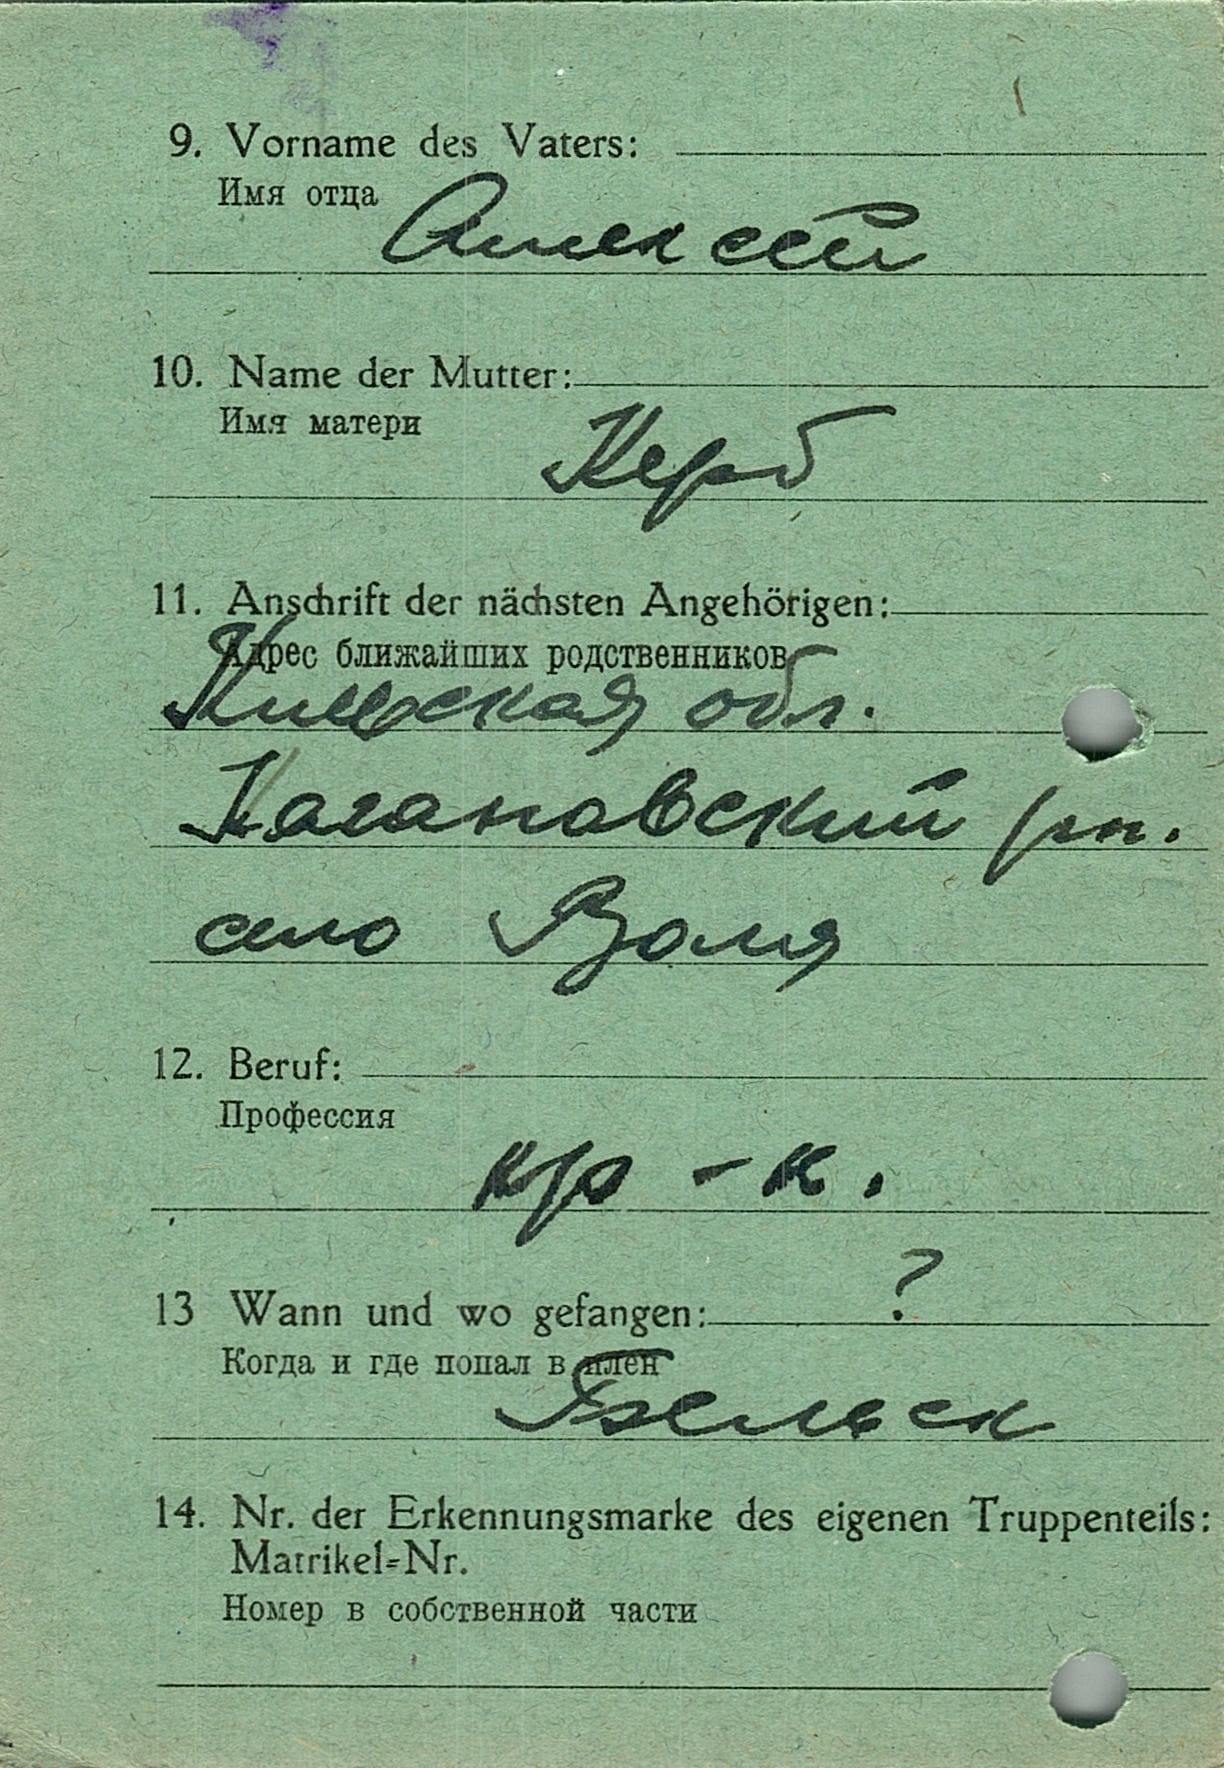 9. Vorname des Vaters:
Имя отца
Алексей
10. Name der Mutter:
Имя матери
Керб
11. Anschrift der nächsten Angehörigen:
Адрес ближайших родственников
Киевская обл.
Кагановский рн.
село Воля
12. Beruf:
Профессия
кр-к.
13 Wann und wo gefangen: ?
Когда и где попал в плен
14. Nr. der Erkennungsmarke des eigenen Truppenteils:
Matrikel-Nr.
Номер в собственной части